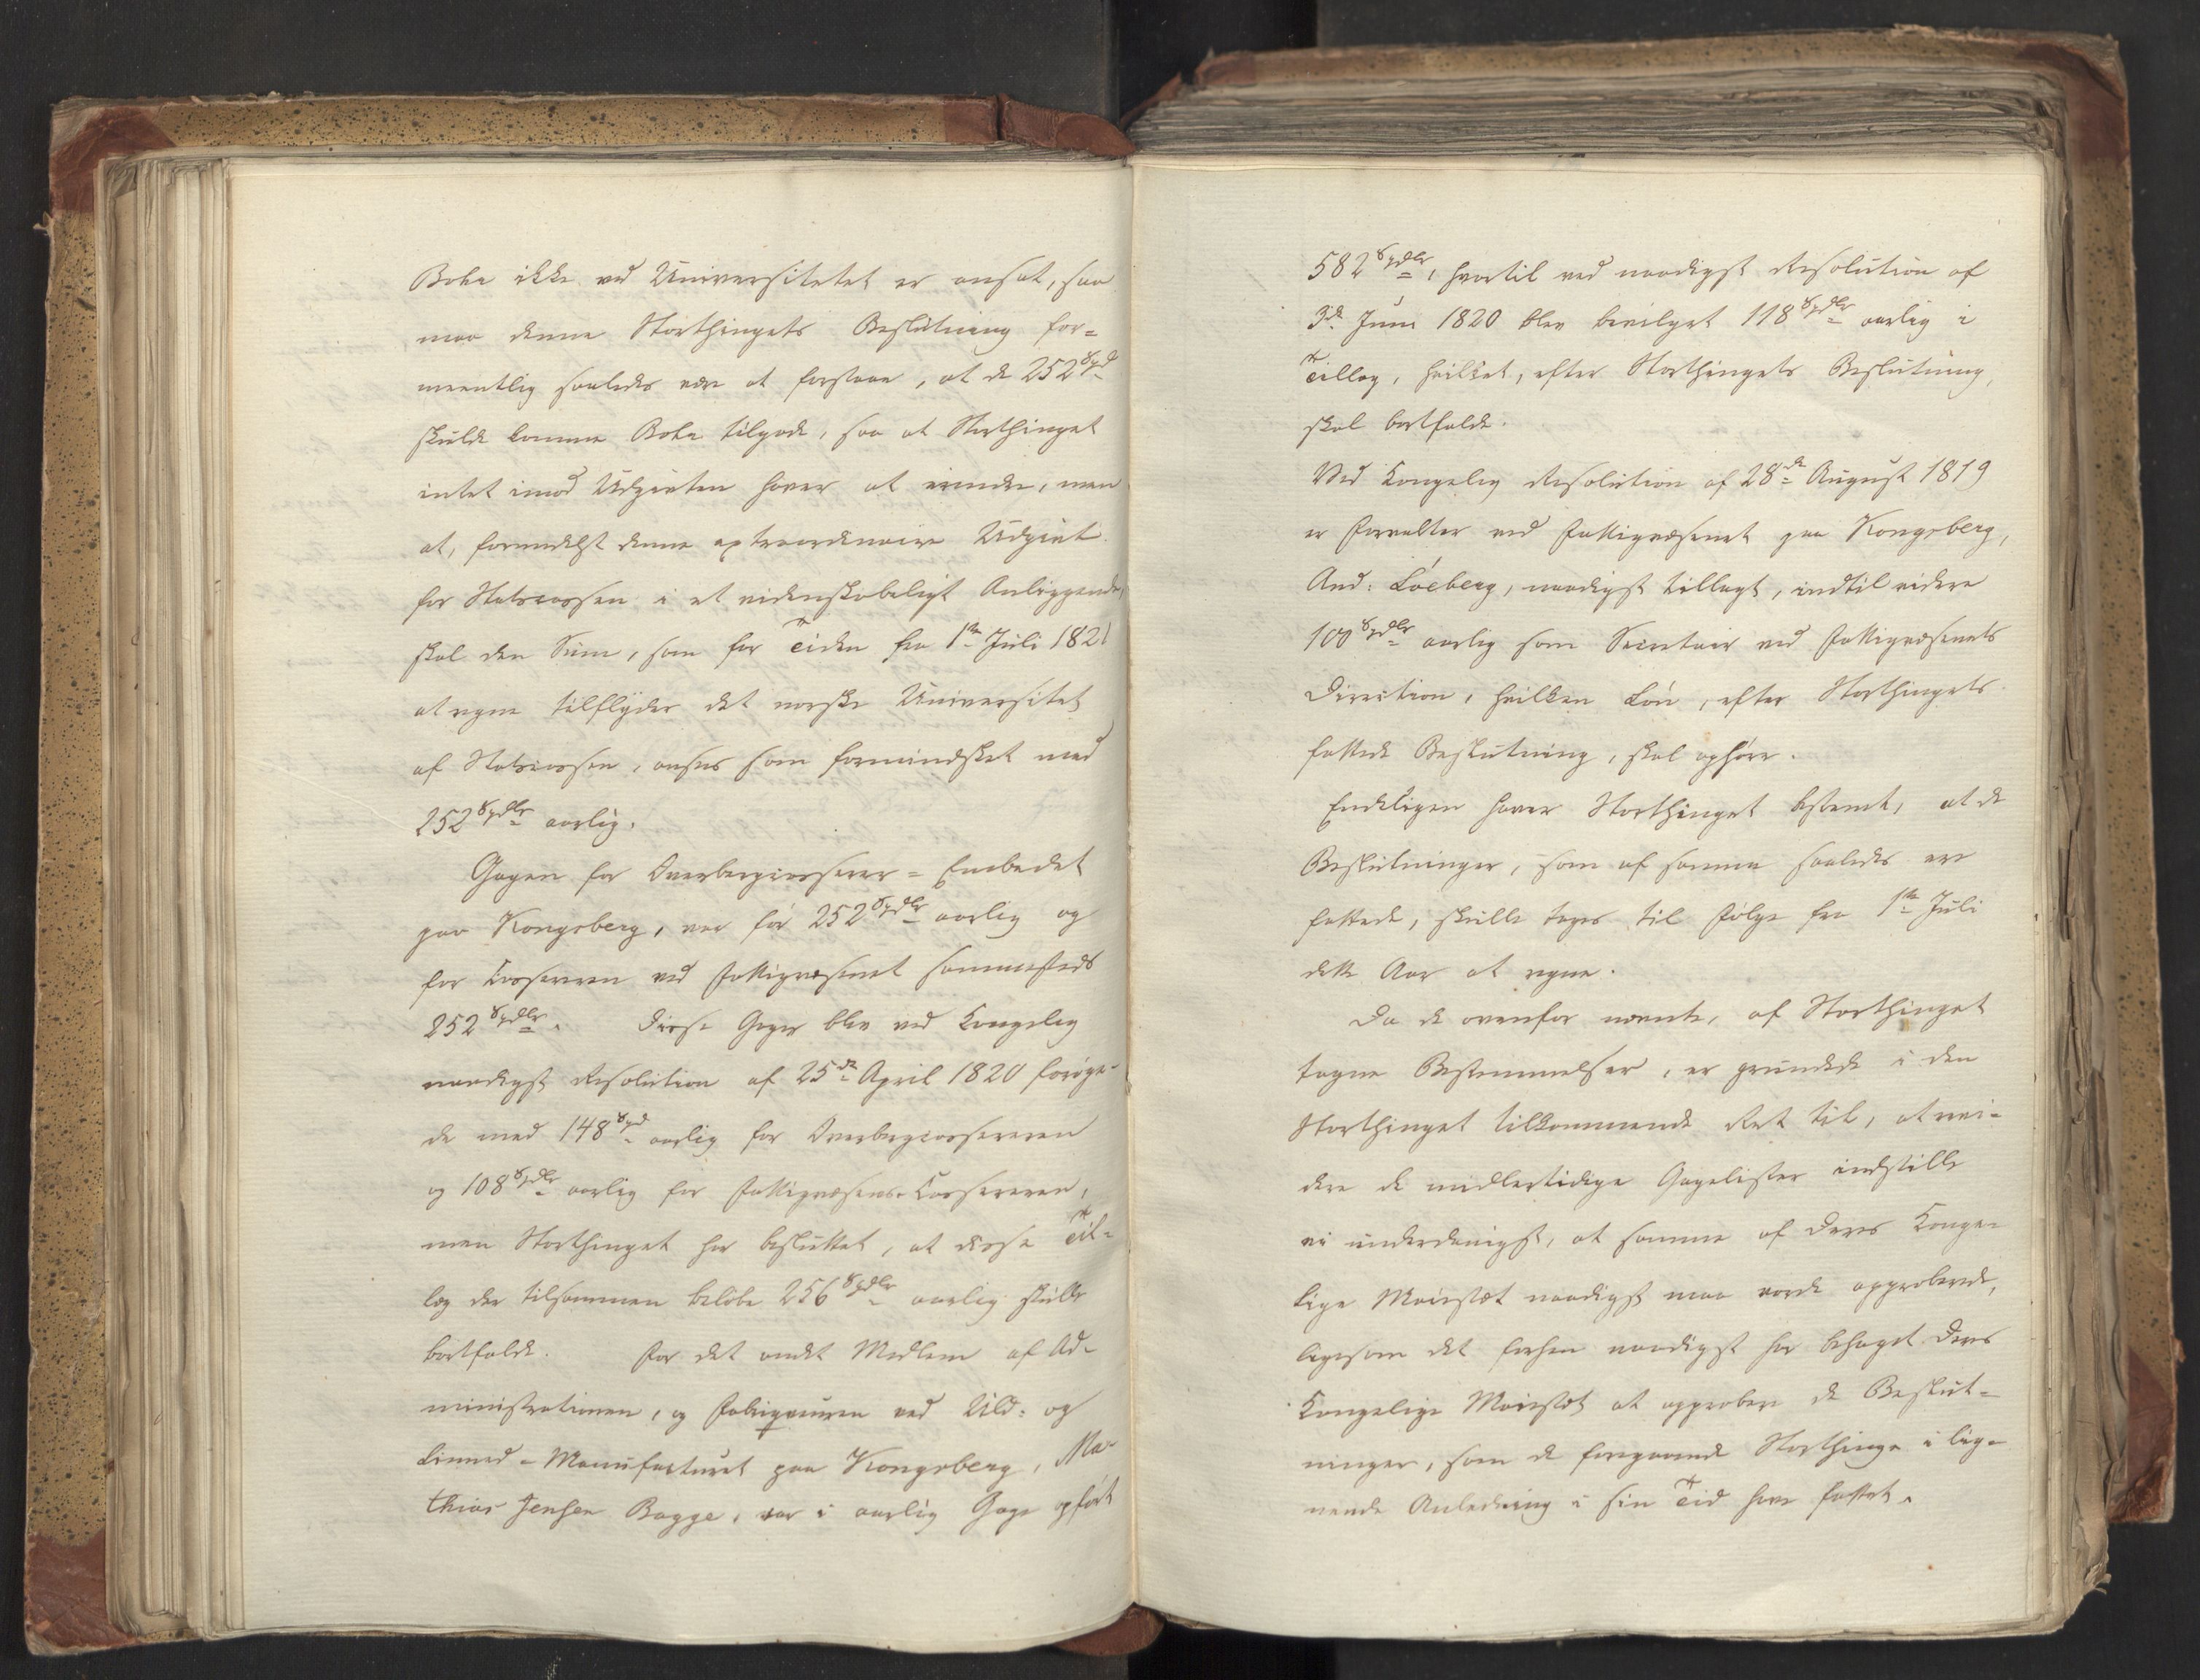 Boke ikke ved Universitetet er ansat, saa
maa denne Storthingets Beslutning for-
meentlig saaledes være at forstaae, at de 252 Spd
skulde komme Boke tilgode, saa at Storthinget
intet imod Udgivten haver at erindre, men
at, formedelst denne extraordinaire Udgivt
for Statscassen i et videnskabeligt Anliggende,
skal den Sum, som for Tiden fra 1ste Juli 1821
at regne tilflyder det norske Universitet
af Statscassen, ansees som formindsket med
252 Spdlr aarlig.
Gagen for Overbergcasserer-Embedet
paa Kongsberg, var før 252 Spdlr aarlig og
for Casserer ved Fattigvæsenet sammesteds
252 Spdlr. Disse Gager blev ved Kongelig
naadigst Resolution af 25de April 1820 forøge-
de med 148 Spd aarlig for Overbergcassereren
og 108 Spdlr aarlig for Fattigvæsens-Cassereren,
men Storthinget har besluttet, at disse Til-
læg der tilsammen beløbe 256 Spdlr aarlig skulle
bortfalde. For det andet Medlem af Ad-
ministrationen, og Fabriqueuren ved Uld- og
Linned-Manufacturet paa Kongsberg, Ma-
thias Jensen Bagge, var i aarlig Gage opført
582 Spdlr, hvortil ved naadigst Resolution af
3die Juni 1820 blev bevilget 118 Spdlr aarlig i
Tillæg, hvilket, efter Storthingets Beslutning,
skal bortfalde.
Ved Kongelig Resolution af 28de August 1819
er Forvalter ved Fattigvæsenet paa Kongsberg,
And: Löeberg, naadigst tillagt, indtil videre
100 Spdlr aarlig som Secretair ved Fattigvæsenets
Direction, hvilken Løn, efter Storthingets
fattede Beslutning, skal ophøre.
Endeligen haver Storthinget bestemt, at de
Beslutninger, som af samme saaledes ere
fattede, skulle tages til Følge fra 1ste Juli
dette Aar at regne.
Da de ovenfor nævnte, af Storthinget
tagne Bestemmelser, er grundede i den
Storthinget tilkommende Ret til, at revi-
dere de midlertidige Gagelister indstille
vi underdanigst, at samme af Deres Konge-
lige Majestæt naadigst maa vorde approberede,
ligesom det forhen naadigst har behaget Deres
Kongelige Majestæt at approbere de Beslut-
ninger, som de foregaaende Storthinge i lig-
nende Anledning i sin Tid have fattet.